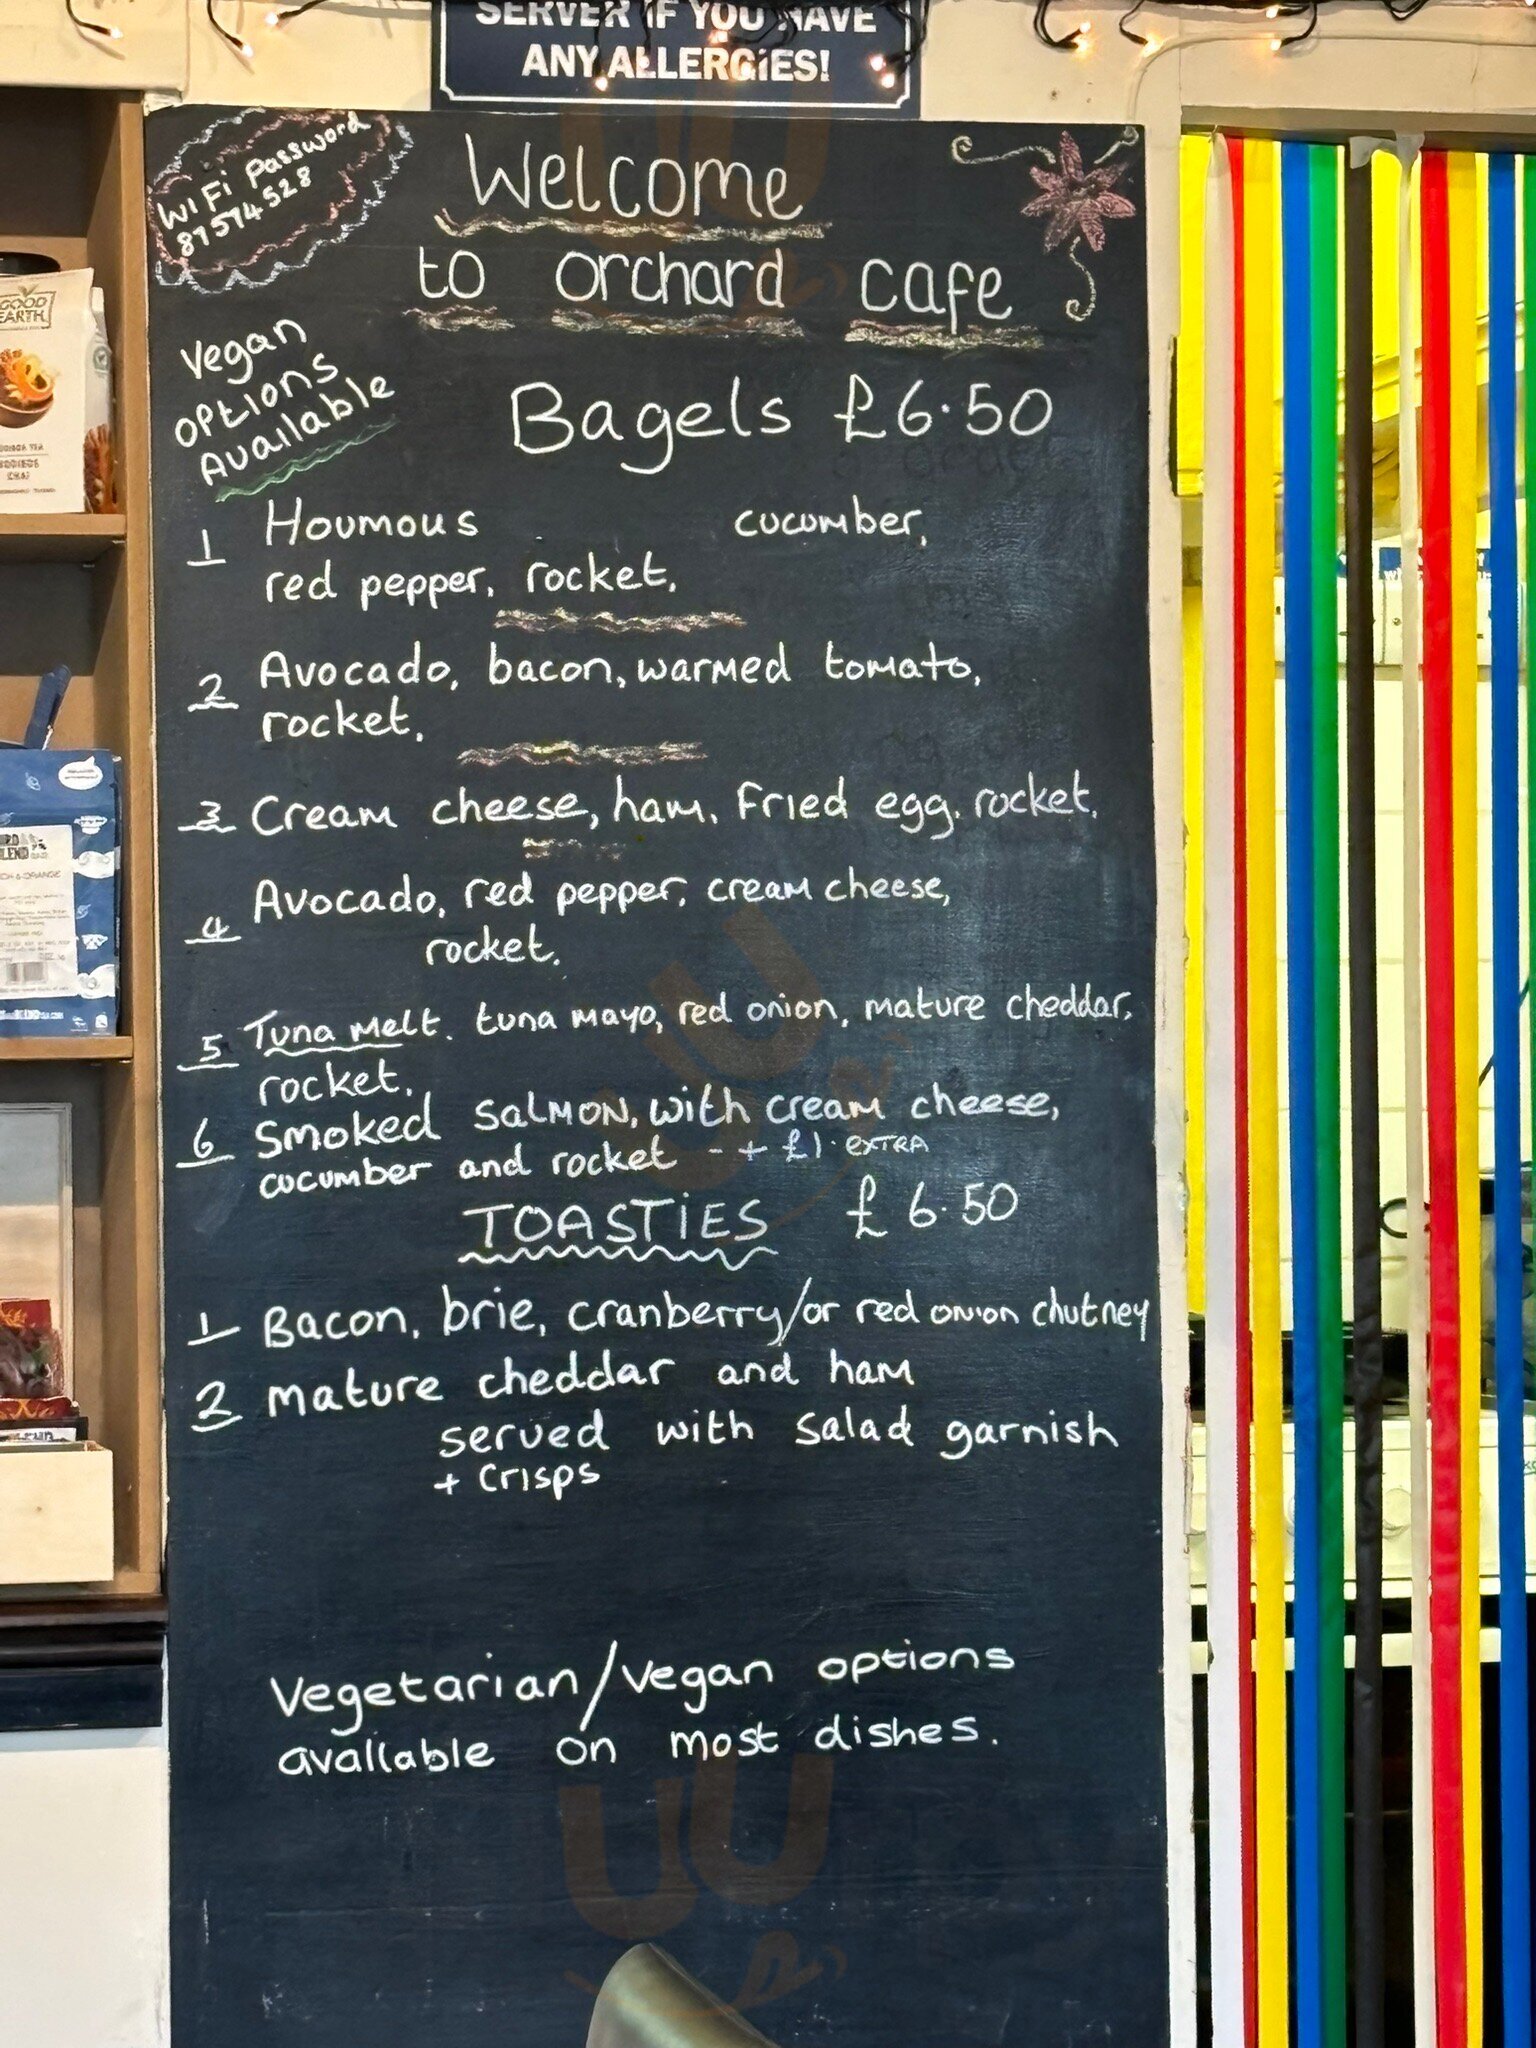 SERVER IF YOU HAVE
ANY ALLERGIES!
WiFi Password
87574528
Welcome
to orchard cafe
Vegan
options
Available
Bagels £6.50
1 Houmous cucumber,
red pepper, rocket.
2 Avocado, bacon, warmed tomato,
rocket.
3 Cream cheese, ham, Fried egg, rocket.
4 Avocado, red pepper, cream cheese,
rocket.
5 Tuna Melt. tuna mayo, red onion, mature cheddar,
rocket.
6 Smoked Salmon, with cream cheese,
cucumber and rocket - + £1. extra
TOASTiES £6.50
1 Bacon, brie, cranberry/or red onion chutney
2 mature cheddar and ham
served with salad garnish
+ crisps
Vegetarian/vegan options
available on most dishes.
GOOD
EARTH